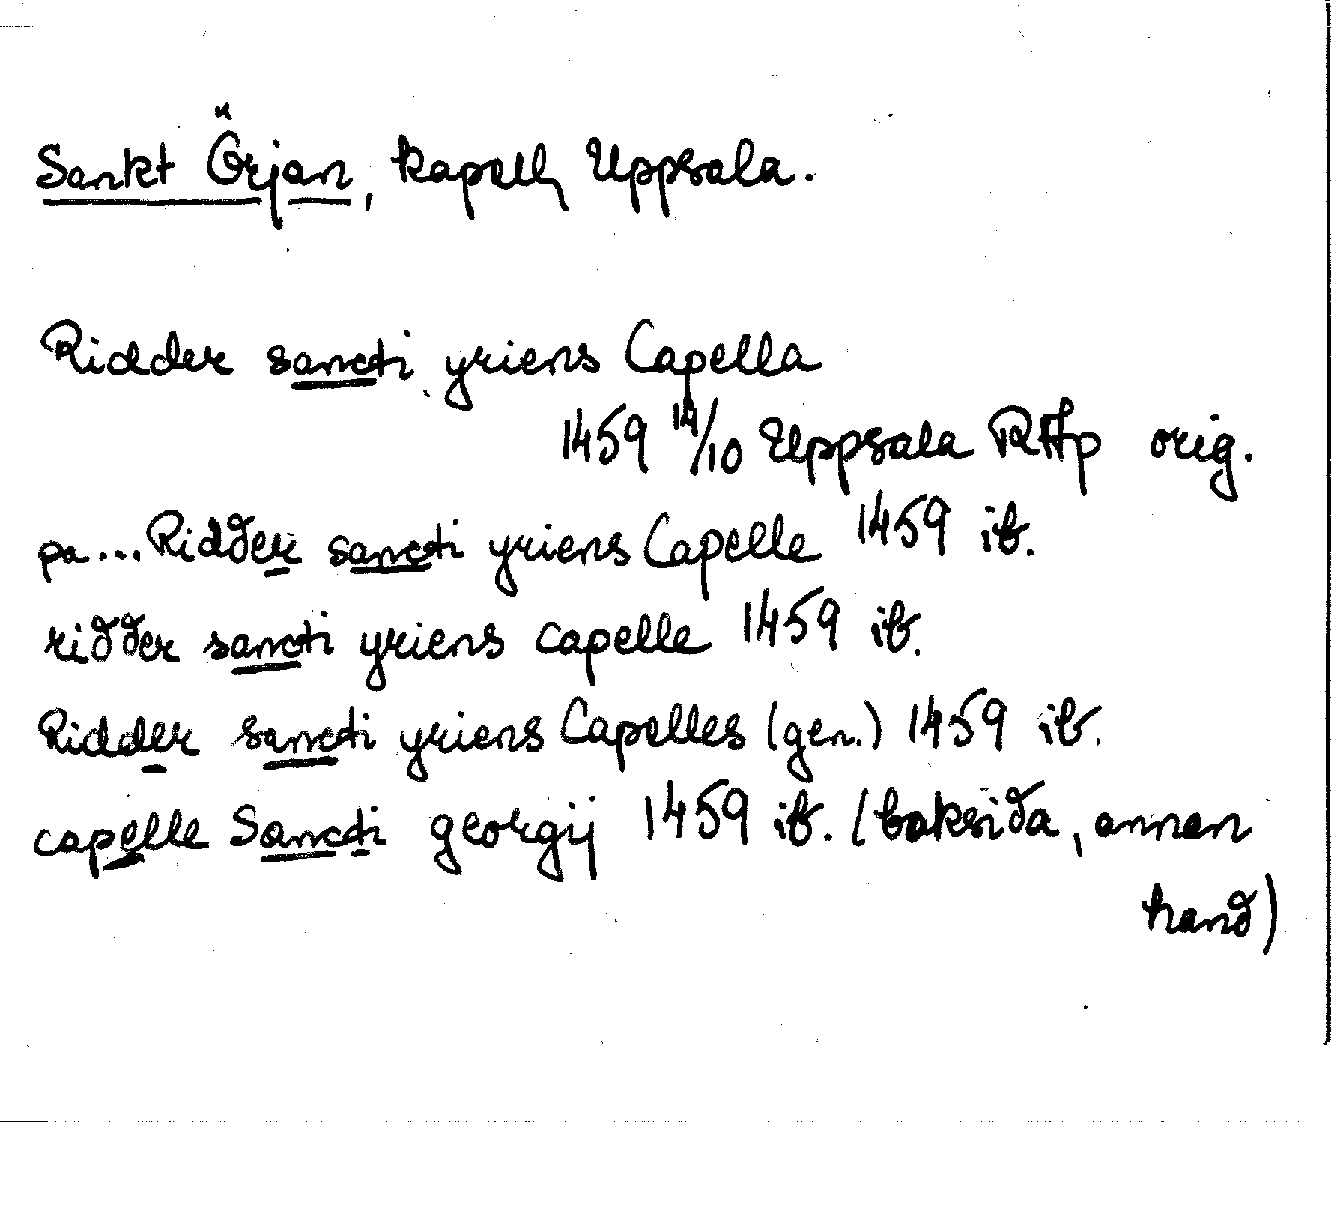 Sankt Örjan, kapell, Uppsala.
Ridder sancti yriens Capella
1459 14/10 Uppsala RAp orig.
pa... Ridder sancti yriens Capelle 1459 ib.
ridder sancti yriens capelle 1459 ib.
Ridder sancti yriens Capelles (gen.) 1459 ib.
capelle Sancti georgij 1459 ib. (baksida, annan
hand)